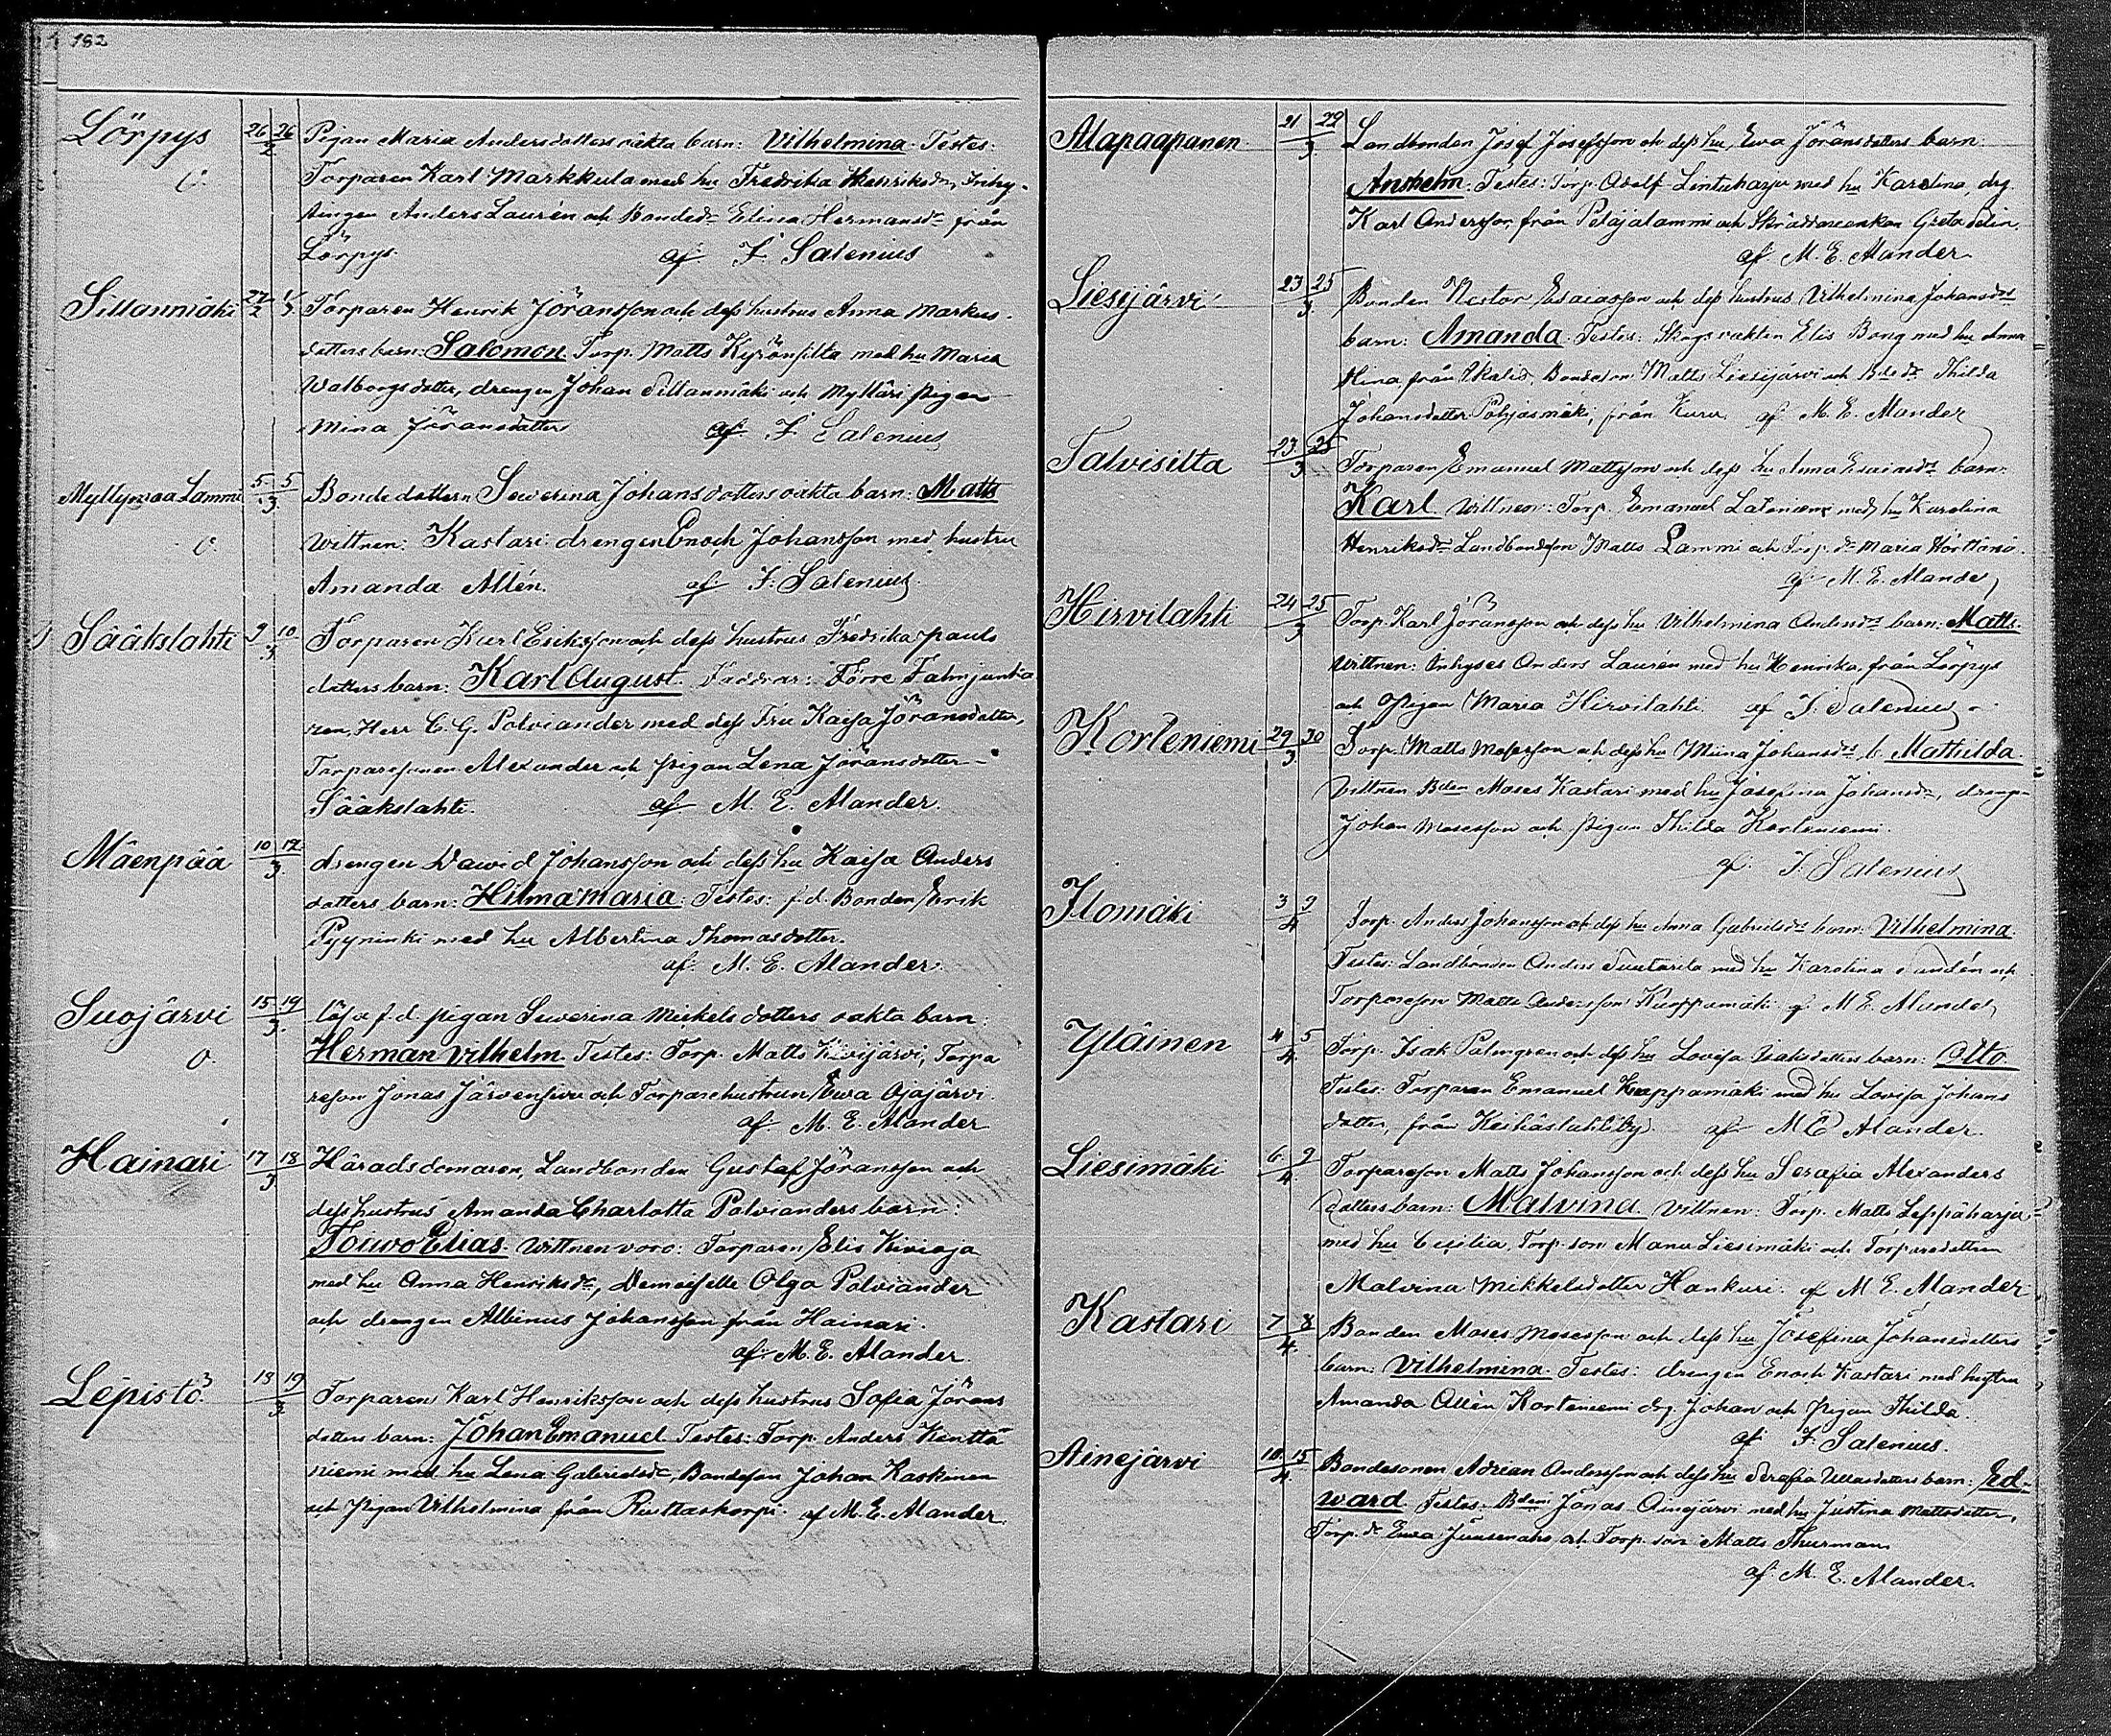 182
Lörpys 26 26 Pigan Maria Andersdotters oäkta barn: Vilhelmina. Testes:
o. 2 Torparen Karl Markkula med hu Fredrika Henriksdr, Inhy-
singen Anders Laurén och Bondedr Elina Hermansdr från
Lörpys. af F. Salenius
Sillanmäki 27/2 1/3 Torparen Henrik Jöransson och dess hustrus Anna Markus-
dotters barn: Salomon. Torp. Matts Kyrönsilta med hu Maria
Walborgsdotter, drengen Johan Sillanmäki och Mylläri pigan
Mina Jöransdotter af F. Salenius
Myllymaa Lammi 5 5 Bondedottern Sewerina Johansdotters oäkta barn: Matts
o. 3. Wittnen: Kastari drengen Enoch Johansson med hustru
Amanda Allén. af F. Salenius
Sääkslahti 9 10 Torparen Karl Eriksson och dess hustrus Fredrika Pauls
3 dotters barn: Karl August. Faddrar: Förre Fahnjunka
ren, Herr C. G. Polviander med dess Fru Kajsa Jöransdotter,
Torparesonen Alexander och pigan Lena Jöransdotter
Sääkslahti. af M. E. Alander.
Mäenpää 10 12 drengen Dawid Johansson och dess hu Kaisa Anders
3. dotters barn: Hilma Maria. Testes: f.d. Bonden Erik
Pyyninki med hu Albertina Thomasdotter.
af. M. E. Alander.
Suojärvi 15 19 lösa f.d. pigan Sewerina Mickelsdotters oäkta barn:
o. 3. Herman Vilhelm. Testes: Torp. Matts Kivijärvi, Torpa
reson Jonas Järvensivu och Torparehustrun Ewa Ojajärvi.
af M. E. Alander
Hainari 17 18 Häradsdomaren, Landbonden Gustaf Jöransson och
3 dess hustrus Amanda Charlotta Polvianders barn:
Toiwo Elias. Wittnen voro: Torparen Elis Kivioja
med hu Anna Henriksdr, Demoiselle Olga Polviander
och drengen Albinus Johansson från Hainari.
af M. E. Alander.
Lepistö. 18 19 Torparen Karl Henriksson och dess hustrus Sofia Jörans
3 dotters barn: Johan Emanuel. Testes: Torp. Anders Kentta
niemi med hu Lena Gabrielsdr, Bondeson Johan Koskinen
och Pigan Vilhelmina från Ruttaskorpi. af M. E. Alander.
Alapaapanen 21 22 Landbonden Josef Josefsson och dess hu Ewa Jöransdotters barn:
3. Anshelm. Testes: Torp. Adolf Lintuharju med hu Karolina, drg.
Karl Andersson, från Petäjälammi och Skräddareenkan Greta
af M. E. Alander
Liesijärvi 23 25 Bonden Nestor Esaiasson och dess hustrus Vilhelmina Johansdrs
3. barn: Amanda. Testes: Skogsvakten Elis Bong med hu Anna
Stina, från Ikalis, Bondeson Matts Liesijärvi och Bdedr Thilda
Johansdotter Pohjasmäki, från Kuru. af M. E. Alander
Talvisilta 23 25 Torparen Emanuel Mattsson och dess hu Anna Esaiasdrs barn:
3 Karl. Vittnen: Torp. Emanuel Lateniemi med hu Karolina
Henriksdr Landbondeson Matts Lammi och Torp.dr Maria
af M. E. Alander
Hirvilahti 24 25 Torp. Karl Jöransson och dess hu Vilhelmina Andersdrs barn: Matts.
3 Wittnen: Inhyses Anders Laurén med hu Henrika, från Lörpys
och Pigan Maria Hirvilahti af F. Salenius
Korteniemi 29 30 Torp. Matts Mosesson och dess hu Miina Johansdrs b. Mathilda.
3 Vittnen Bden Moses Kastari med hu Josefina Johansdr, drenge
Johan Mosesson och pigan Thilda Korteniemi.
af F. Salenius
Ilomäki 3 9 Torp. Anders Johansson och dess hu Anna Gabrielsdrs barn: Vilhelmina.
4 Testes: Landbonden Anders Tuutarila med hu Karolina Sundén och
Torpareson Matts Andersson Kuoppamäki. af M E. Alander
Yläinen 4 5 Torp. Isak Palmgren och dess hu Lovisa Isaksdotters barn: Otto.
4. Testes: Torparen Emanuel Kuppamäki med hu Lovisa Johans
dotter, från Keihäslahti by. af M E Alander.
Liesimäki 6 9 Torpareson Matts Johansson och dess hu Serafia Alexanders
4. dotters barn: Malvina. Vittnen: Torp. Matts Leppäharju
med hu Cecilia, Torp. son Manu Liesimäki och Torparedottern
Malvina Mikkelsdotter Hankuri. af M E. Alander
Kastari 7 8 Bonden Moses Mosesson och dess hu Josefina Johansdotters
4. barn: Vilhelmina. Testes: drengen Enoch Kastari med hustru
Amanda Allén Korteniemi drg. Johan och Pigan Thilda.
af F. Salenius.
Ainejärvi 10 15 Bondesonen Adrian Andersson och dess hu Serafia barn: Ed-
4 ward. Testes: Bden Jonas Ainejärvi med hu Justina Mattsdotter,
Torp.dr Ewa och Torp. son Matts Thurman.
af M. E. Alander.